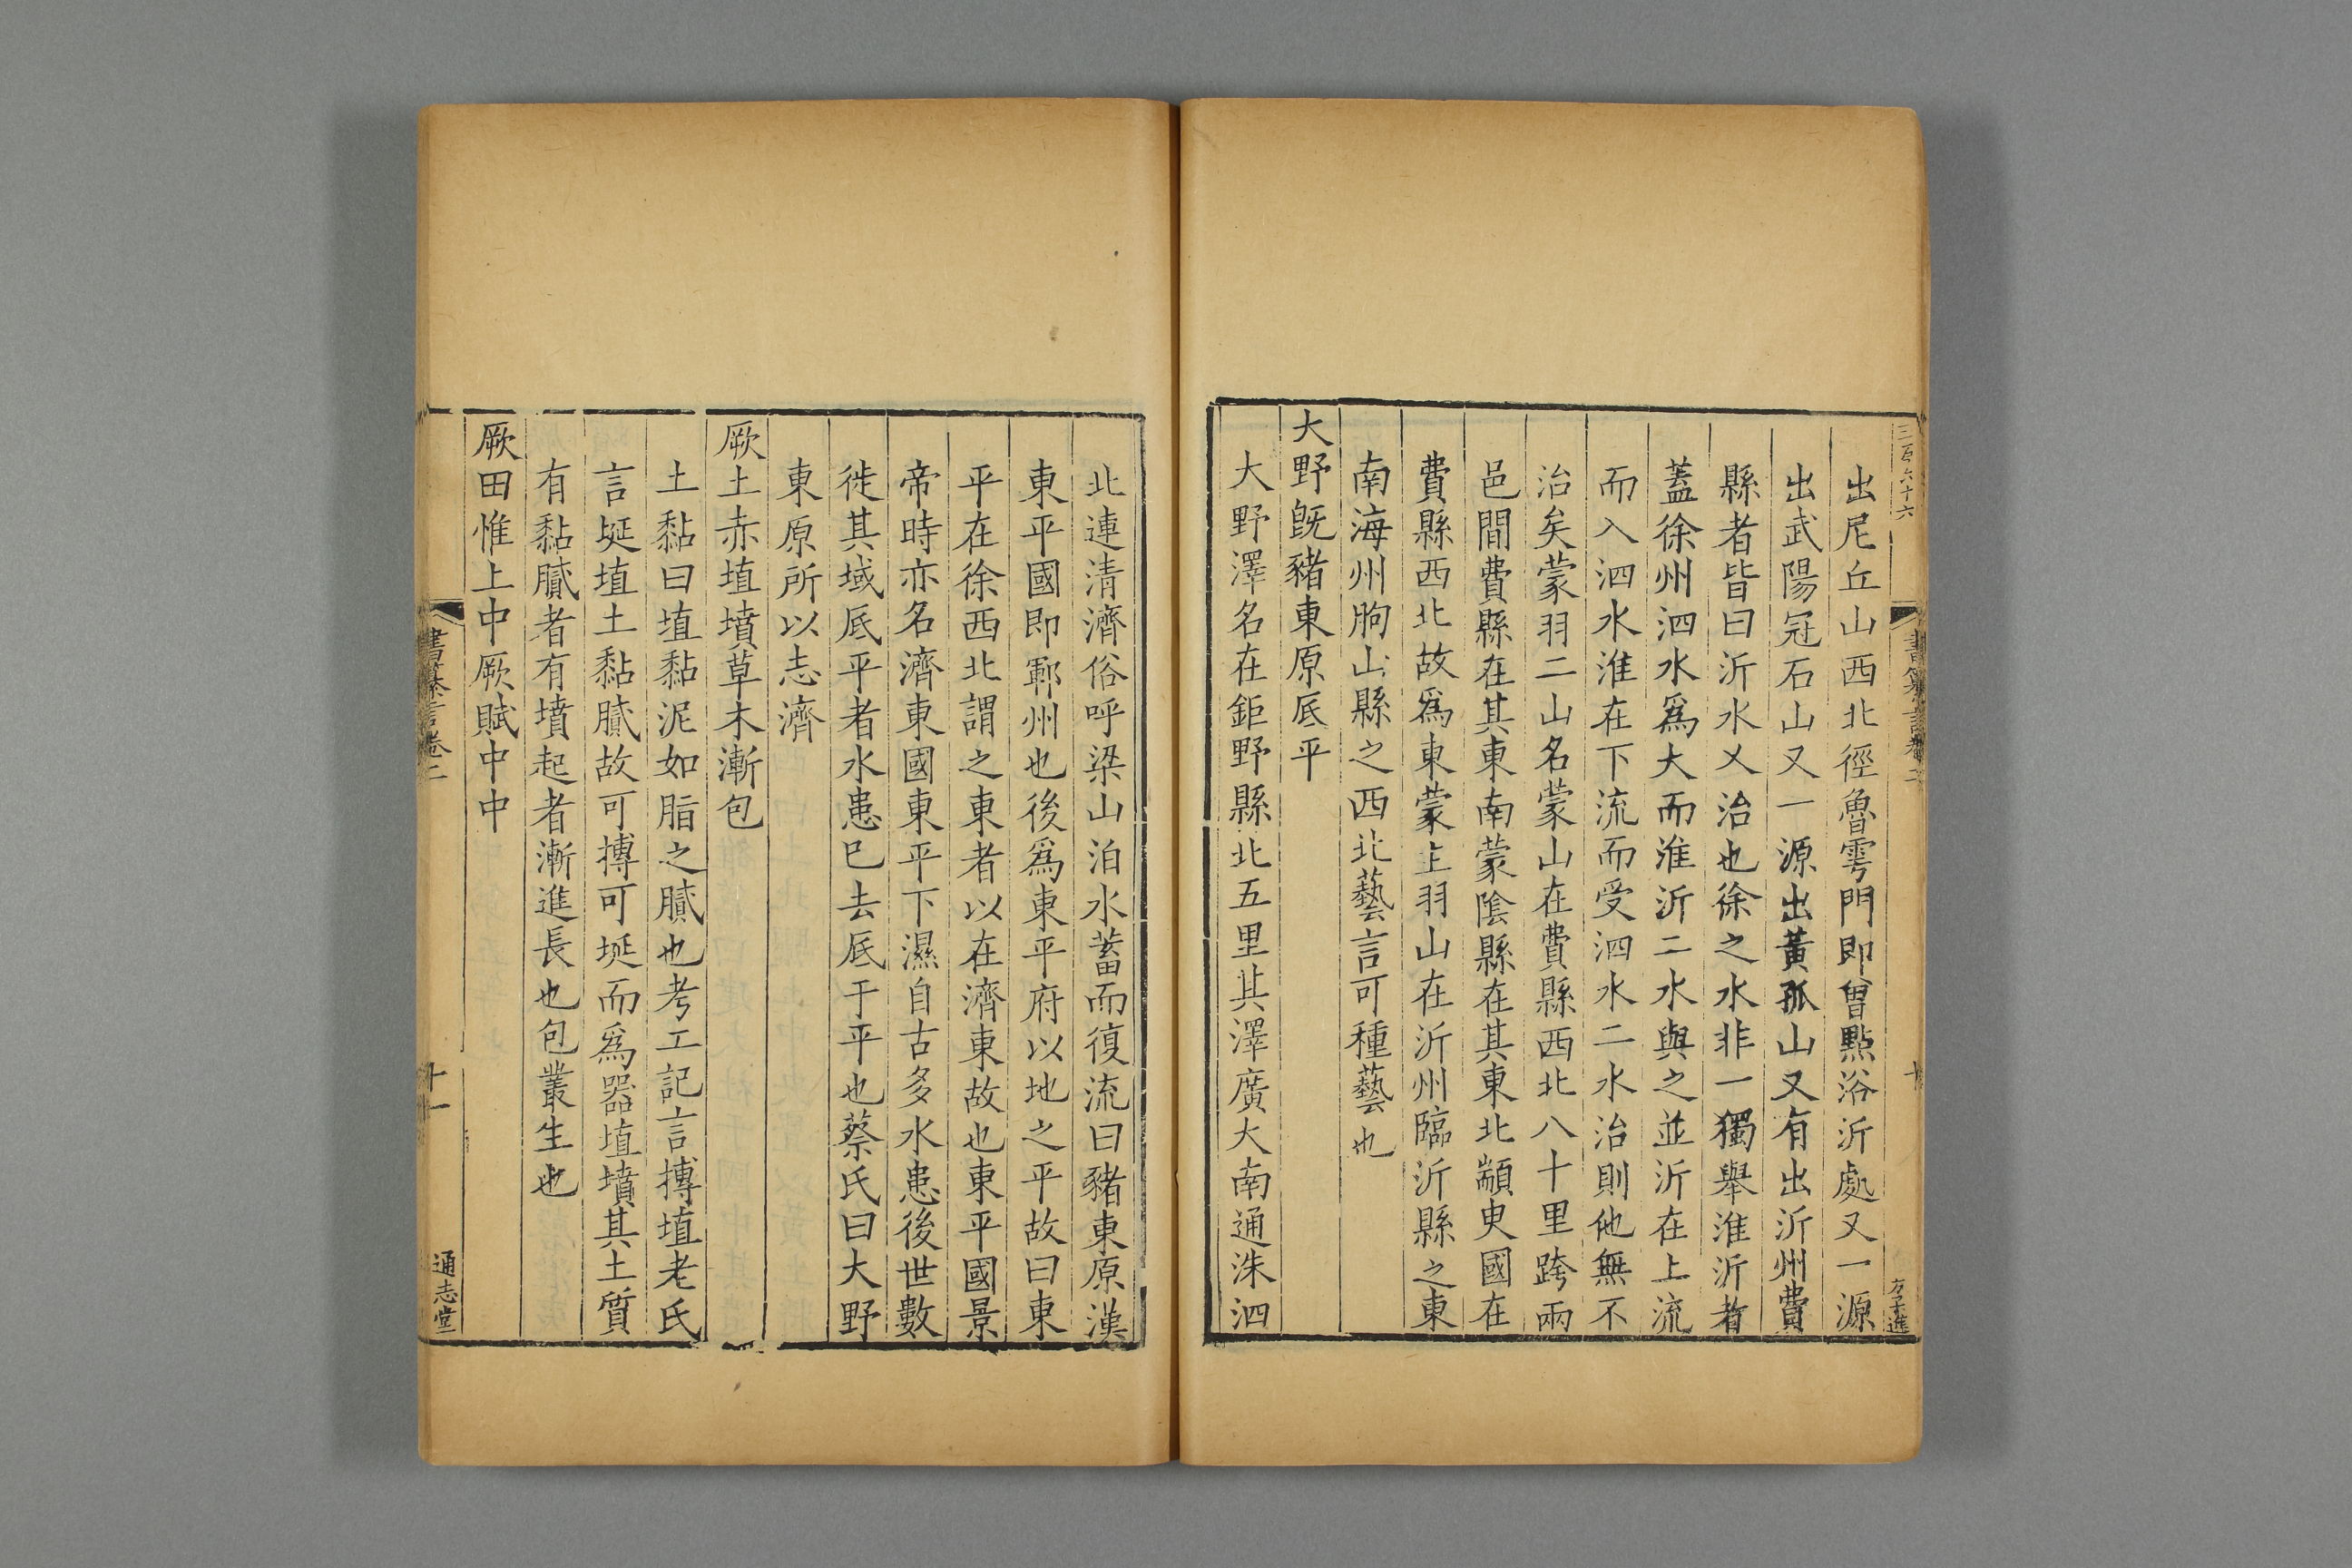 三百六十六
書纂言卷二
十
出尼丘山西北徑魯雩門即曾點浴沂處又一源
出武陽冠石山又一源出黃孤山又有出沂州費
縣者皆曰沂水乂治也徐之水非一獨舉淮沂者
蓋徐州泗水爲大而淮沂二水與之並沂在上流
而入泗水淮在下流而受泗水二水治則他無不
治矣蒙羽二山名蒙山在費縣西北八十里跨兩
邑間費縣在其東南蒙陰縣在其東北顓臾國在
費縣西北故爲東蒙主羽山在沂州臨沂縣之東
南海州朐山縣之西北藝言可種藝也
大野旣豬東原厎平
大野澤名在鉅野縣北五里其澤廣大南通洙泗
北連清濟俗呼梁山泊水蓄而復流曰豬東原漢
東平國即鄆州也後爲東平府以地之平故曰東
平在徐西北謂之東者以在濟東故也東平國景
帝時亦名濟東國東平下濕自古多水患後世數
徙其城厎平者水患已去厎于平也蔡氏曰大野
東原所以志濟
厥土赤埴墳草木漸包
土黏曰埴黏泥如脂之膩也考工記言摶埴老氏
言埏埴土黏膩故可摶可埏而爲器埴墳其土質
有黏膩者有墳起者漸進長也包叢生也
厥田惟上中厥賦中中
書纂言卷二
十一
通志堂